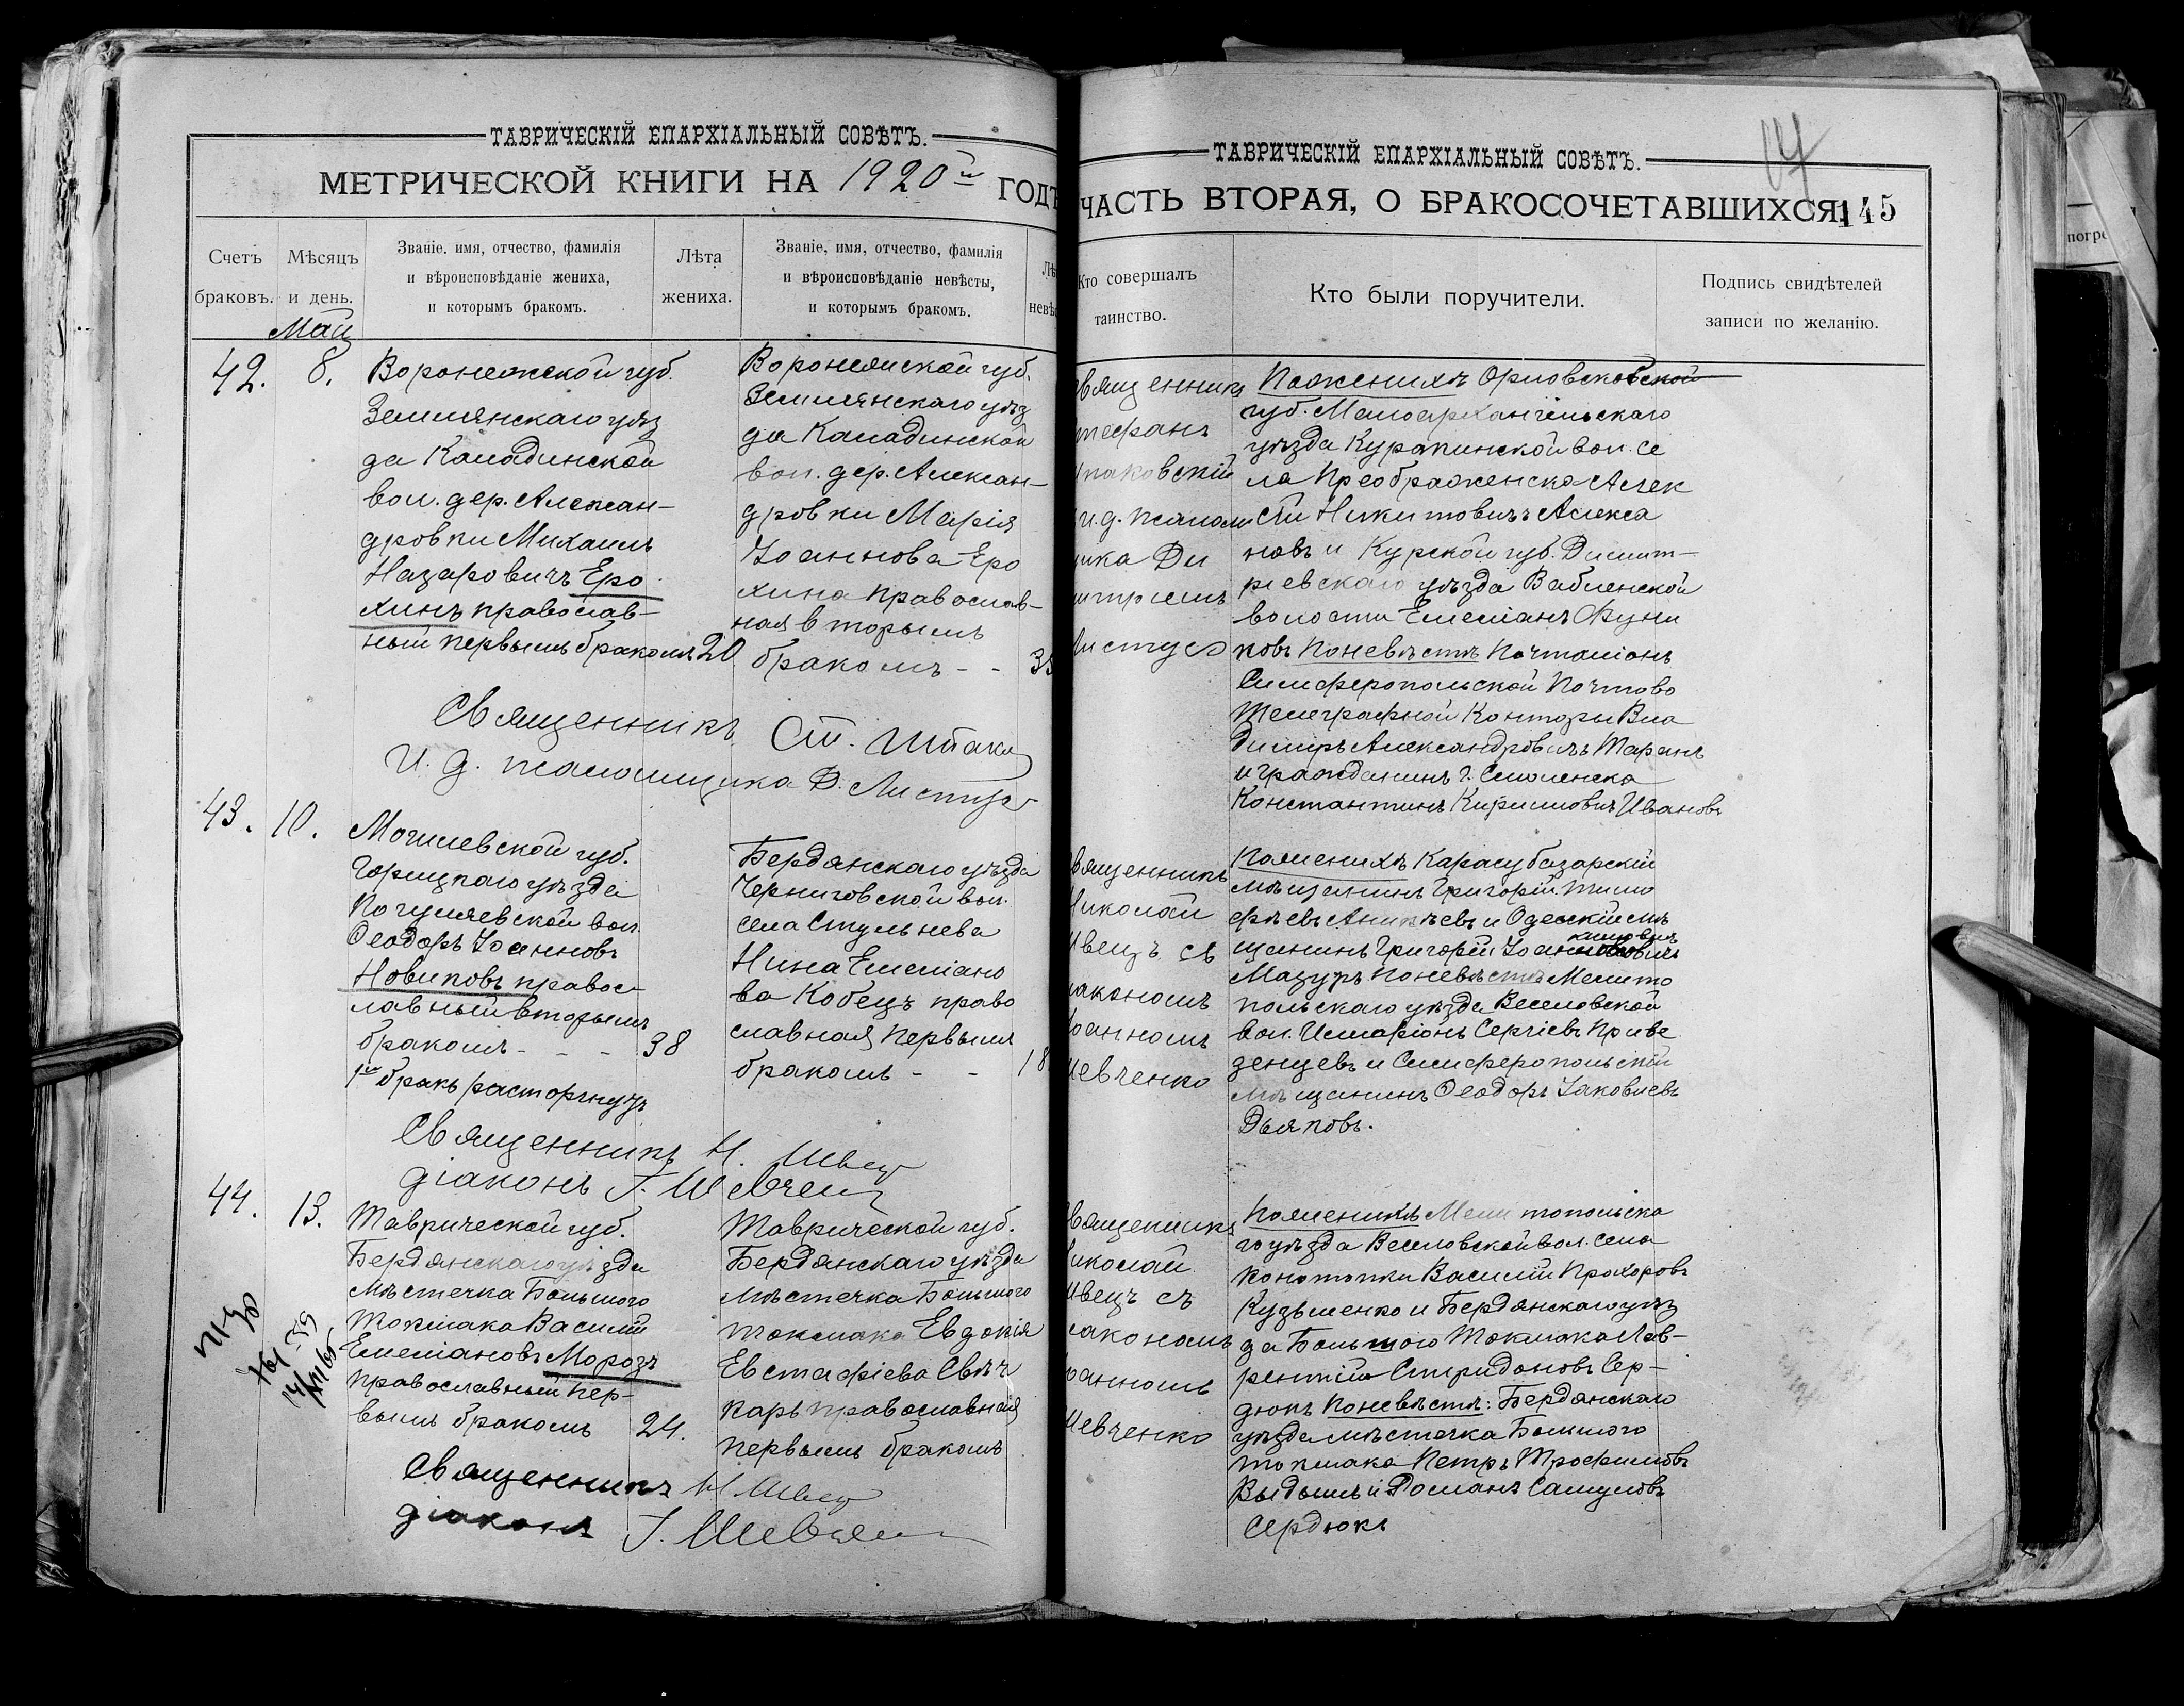 ТАВРИЧЕСКІЙ ЕПАРХІАЛЬНЫЙ СОВѢТЪ.
МЕТРИЧЕСКОЙ КНИГИ НА 1920й ГОДЪ
Счетъ браковъ.
Мѣсяцъ и день.
Званіе, имя, отчество, фамилія
и вѣроисповѣданіе жениха,
и которымъ бракомъ.
Лѣта
жениха.
Званіе, имя, отчество, фамилія
и вѣроисповѣданіе невѣсты,
и которымъ бракомъ.
Май
42.
8.
Воронежской губ.
Землянскаго уѣз
да Каладинской
вол. дер. Алексан-
дровки Михаилъ
Назаровичъ Еро
хинъ православ-
ный первымъ бракомъ 20
Воронежской губ.
Землянскаго уѣз
да Каладинской
вол. дер. Алексан-
дровки Марія
Іоаннова Еро
хина православ-
ная вторымъ
бракомъ - -
Священникъ Ст.
И. д. псаломщика Д. Листу
43.
10.
Могилевской губ.
Горицкаго уѣзда
вол.
Ѳеодоръ Іоанновъ
Новиковъ правос-
лавный вторымъ
бракомъ - - - 38
1й бракъ расторгнутъ
Бердянскаго уѣзда
Черниговской вол.
села Стульнева
Нина Емеліано
ва Кобецъ право
славная первымъ
бракомъ - - 18
Священникъ Н. Швец
діаконъ І. Шевчен
44.
13.
Таврической губ.
Бердянскаго уѣзда
мѣстечка Большого
Токмака Василій
Емеліановъ Морозъ
православный пер-
вымъ бракомъ 24.
Таврической губ.
Бердянскаго уѣзда
мѣстечка Большого
Токмака Евдокія
Евстафіева Свѣч
карь православная
первымъ бракомъ
Священникъ Н. Швец
діаконъ І. Шевчен
ТАВРИЧЕСКІЙ ЕПАРХІАЛЬНЫЙ СОВѢТЪ.
ЧАСТЬ ВТОРАЯ, О БРАКОСОЧЕТАВШИХСЯ.
145
Кто совершалъ
таинство.
Кто были поручители.
Подпись свидѣтелей
записи по желанію.
вященникъ
тефанъ
паковскій
и.д. псалом
щика Ди
митріемъ
Листусо
По женихѣ Орловсковской
губ. Малоархангельскаго
уѣзда Куракинской вол. се
ла Преображенска Алек
сѣй Никитовичъ Алекса
новъ и Курской губ. Димит-
ріевскаго уѣзда Вабленской
волости Емеліанъ
ковъ по невѣстѣ почталіонъ
Симферопольской Почтово
Телеграфной Конторы Вла
диміръ Александровичъ Таранъ
и гражданинъ г. Смоленска
Константинъ Кирилловичъ Ивановъ
вященникъ
Николай
Швецъ съ
іакономъ
оанномъ
Шевченко
По женихѣ Карасубазарскій
мѣщанинъ Григорій Тимо
фѣевъ Аникѣевъ и Одесскій мѣ
щанинъ Григорій
Мазуръ по невѣстѣ Мелито
польскаго уѣзда Веселовской
вол. Иларіонъ Сергіевъ Приве
зенцевъ и Симферопольскій
мѣщанинъ Ѳеодоръ Іаковлевъ
Дьяковъ.
вященникъ
иколай
Швецъ съ
іакономъ
оанномъ
Шевченко
По женихѣ Мелитопольска
го уѣзда Веселовской вол. села
Конотопки Василій Прохоровъ
Кузьменко и Бердянскаго уѣз
да Большого Токмака Лав-
рентій Спиридоновъ Сер-
дюкъ по невѣстѣ: Бердянскаго
уѣзда мѣстечка Большого
Токмака Петръ Трофимовъ
и Романъ Самуиловъ
Сердюкъ